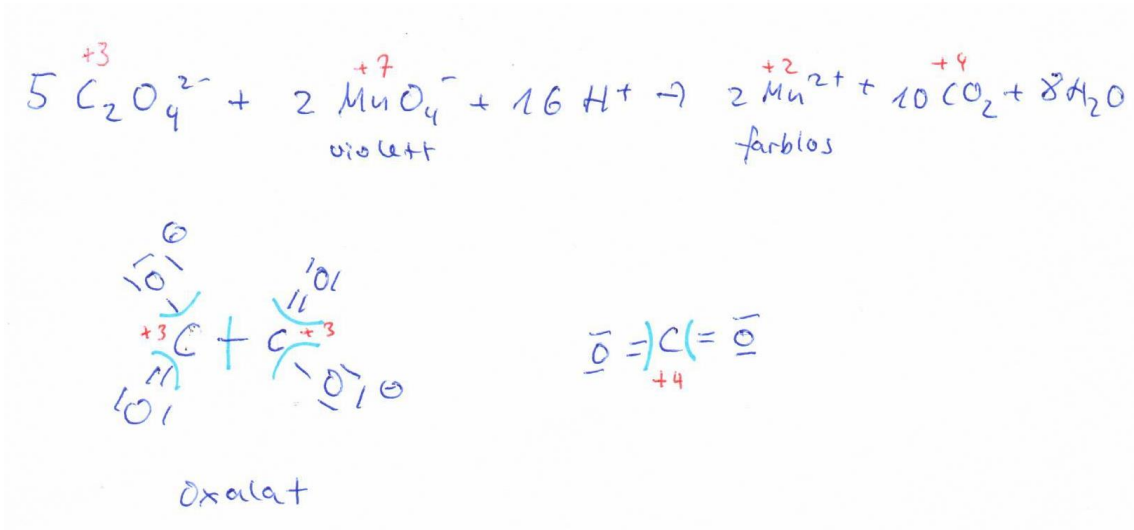 +3 +7 +2 +4
5 C₂O₄²⁻ + 2 MnO₄⁻ + 16 H⁺ → 2 Mn²⁺ + 10 CO₂ + 8 H₂O
violett farblos
⊖
|O| |O|
+3 C + C +3 O = C = O
+4
|O| |O| ⊖
Oxalat